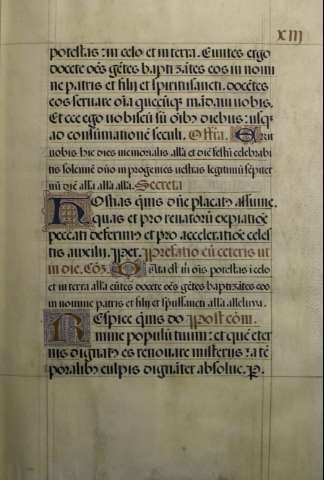 XIII
potestas : in celo et in terra. Euntes ergo
docete oēs gētes baptizātes eos in nomi
ne patris et filij et spiritussancti. docētes
eos seruare oīa quecūq; mādaui uobis.
Et ecce ego uobiscū sū oībȝ diebus : usq;
ad consumationē seculi. Offia. Erit
uobis hic dies memorialis alla et diē festū celebrabi
tis solennē dño in progenies uestras legitimū sempiter
nū diē alla alla alla. Secreta
Hostias qm̄s dñe placatꝰ assume.
quas et pro renatorū expiatiōe
peccati deferimus et pro acceleratiōe celes
tis auxilij. Per. Prefatio cū ceteris ut
in die. Cōō. Data est m̄ oīs potestas i celo
et in terra alla eūtes docete oēs gētes baptizātes eos
in nomine patris et filij et spūssancti alla alleluia.
Respice qm̄s do Post cōm.
mine populū tuum : et quē eter
nis dignatꝰ es renouare misterijs : a tē
poralibꝰ culpis dignāter absolue. P.